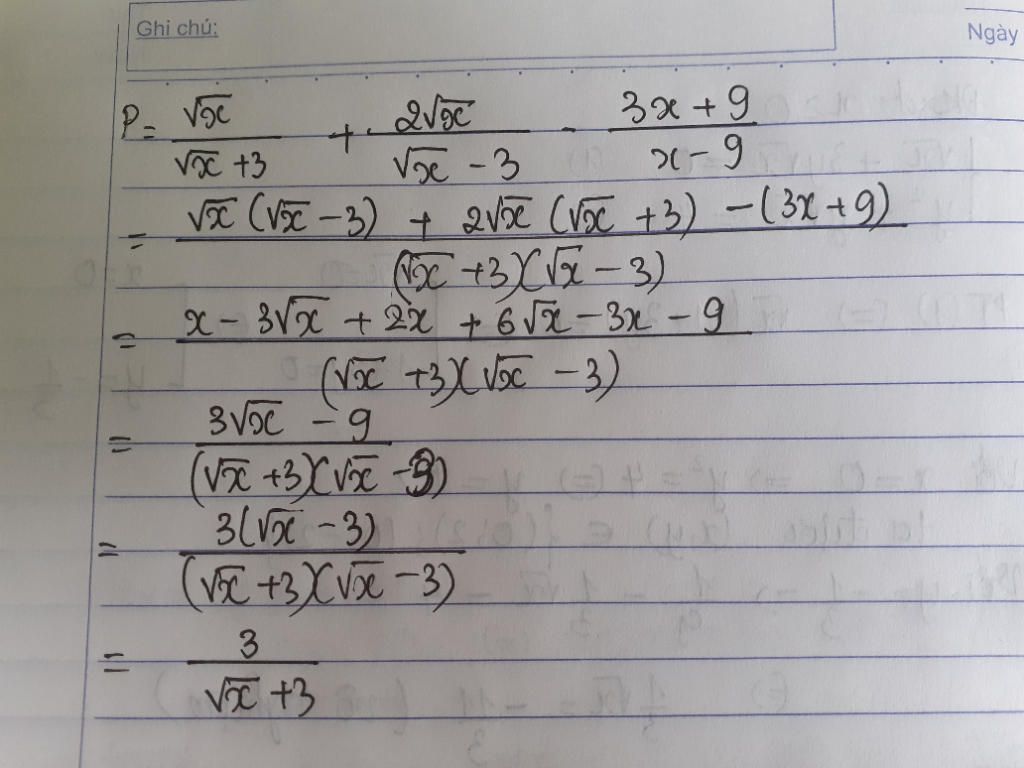 Ghi chú:
Ngày
P = √x / (√x + 3) + 2√x / (√x - 3) - (3x + 9) / (x - 9)
= (√x (√x - 3) + 2√x (√x + 3) - (3x + 9)) / ((√x + 3)(√x - 3))
= (x - 3√x + 2x + 6√x - 3x - 9) / ((√x + 3)(√x - 3))
= (3√x - 9) / ((√x + 3)(√x - 3))
= 3(√x - 3) / ((√x + 3)(√x - 3))
= 3 / (√x + 3)